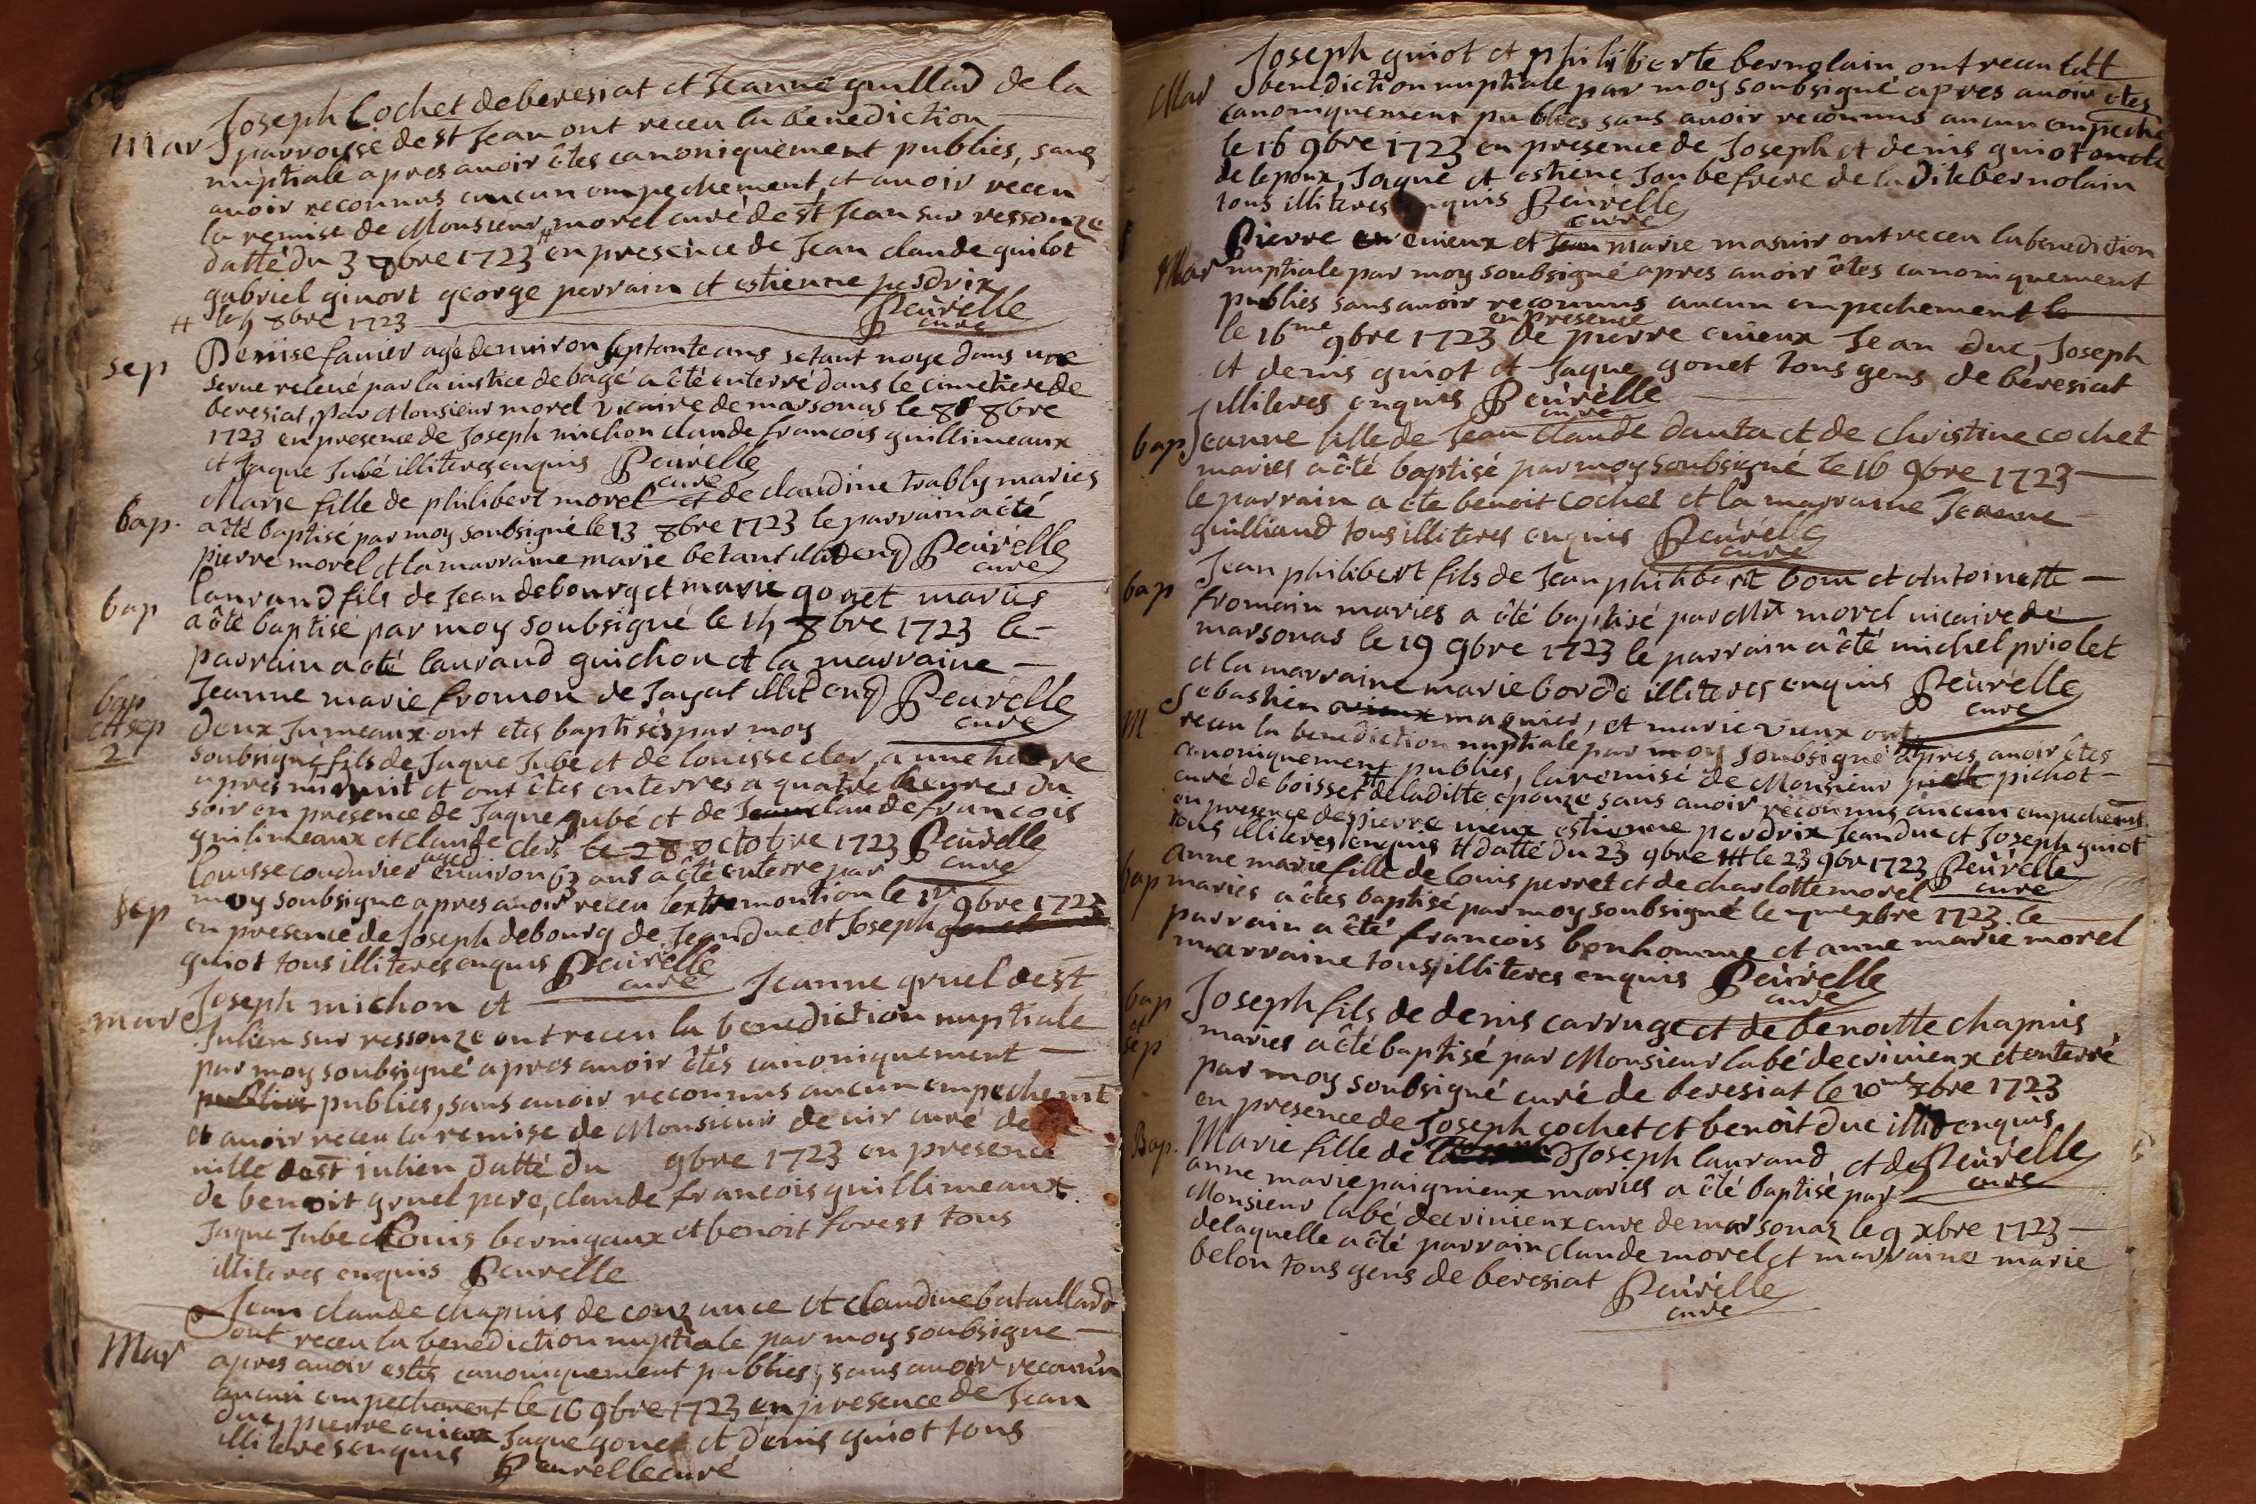 Mar Joseph Cochet de beresiat et Jeanne guillad de la
parroisse de st Jean ont receu la benediction
nuptiale apres avoir êtes canoniquement publies, sans
avoir reconnus aucun empechement, et avoir receu
la remise de Monsieur morel curé de st Jean sur ressouze
datté du 3 8bre 1723 # en presence de Jean claude guilot
gabriel guiort george perrain et estienne perdrix
# le 4 8bre 1723 Peurelle
curé
sep Denise favier agé denviron septante ans setant noye dans une
serve relevé par la iustice de bagé a êté enterré dans le cimetiere de
beresiat, par Monsieur morel vicaire de marsonas le 8 8bre
1723 en presence de Joseph michon claude francois guillimeaux
et Jaque Jubé illiteres enquis Peurelle
curé
Marie fille de philibert morel et de claudine trably maries
bap. a êté baptisé par moy soubsigné le 13 8bre 1723 le parrain a êté
pierre morel et la marraine marie betant illit enq Peurelle
curé
bap laurand fils de Jean debourg et marie gonet mariés
a êté baptisé par moy soubsigné le 14 8bre 1723 le
parrain a êté laurand guichon et la marraine
Jeanne marie fromon de Jayat illit enq Peurelle
curé
bap
et sep
2
deux Jumeaux ont etes baptisés par moy
soubsigné fils de Jaque Jube et de louisse cler, a une heure
apres minuit et ont êtes enterres a quatre heures du
soir en presence de Jaque Jubé et de Jean claude francois
guilimeaux et claude clers le 28 octobre 1723 Peurelle
curé
louisse coudurier agee environ 63 ans a êté enterre par
sep moy soubsigne apres avoir receu lextremontion le 1r 9bre 1723
en presence de Joseph debourg de Jean duc et Joseph
guiot tous illiteres enquis Peurelle
curé
mar Joseph michon et Jeanne gruel de st
Julien sur ressouze ont receu la benediction nuptiale
par moy soubsigné apres avoir êtés canoniquement
publies publies, sans avoir reconnus aucun empechemt
et avoir receu la remise de Monsieur de uir curé de
uille de st iulien datté du 9bre 1723 en presence
de benoit gruel pere, claude francois guillimeaux
Jaque Jube Louis bernigaux et benoit forest tous
illiteres enquis Peurelle
Jean claude chapuis de couzance et claudine bataillard
Mar ont receu la benediction nuptiale par moy soubsigne
apres avoir estés canoniquement publies, sans avoir reconnu
aucun empechement le 16 9bre 1723 en presence de Jean
duc, pierre Jaque gonet et denis guiot tous
illiteres enquis
Peurelle curé
Joseph guiot et philiberte bernolain ont receu la
Mar benediction nuptiale par moy soubsigné apres avoir êtes
canoniquement publies sans avoir reconnus aucun empeche
le 16 9bre 1723 en presence de Joseph et denis guiot oncle
de lepoux, Jaque et estiene Joube frere de la dite bernolain
tous illiteres enquis Peurelle
curé
Pierre cuieux et Jean marie masuir ont receu la benediction
Mar nuptiale par moy soubsigné apres avoir êtes canoniquement
publies sans avoir reconnus aucun empechement le
le 16me 9bre 1723 en presence de pierre cuieux Jean duc, Joseph
et denis guiot et Jaque gonet tous gens de beresiat
illiteres enquis Peurelle
curé
bap Jeanne fille de Jean claude danta et de christine cochet
maries a êté baptisé par moy soubsigné le 16 9bre 1723
le parrain a ete benoit cochet et la marraine Jeanne
guilliand tous illiteres enquis Peurelle
curé
bap Jean philibert fils de Jean philibert bom et Antoinette
fromain maries a êté baptisé par Mr morel uicaire de
marsonas le 19 9bre 1723 le parrain a êté michel priolet
et la marraine marie borde illiteres enquis Peurelle
curé
M Sebastien magnier, et marie vieux ont
receu la benediction nuptiale par moy soubsigné apres avoir êtes
canoniquement publies, la remise de Monsieur pichot
curé de boisset # de laditte epouze sans avoir reconnus aucun empechemt
en presence de pierre uieux estienne perdrix Jean duc et Joseph guiot
tous illiteres enquis # datté du 23 9bre # le 23 9bre 1723 Peurelle
curé
bap Anne marie fille de louis perret et de charlotte morel
maries a êtes baptisé par moy soubsigné le 7me xbre 1723 le
parrain a êté francois bonhomme et anne marie morel
marraine tous illiteres enquis Peurelle
curé
bap
et
sep
Joseph fils de denis carruge et de benoitte chapuis
maries a êté baptisé par Monsieur labé de crivieux et enterré
par moy soubsigné curé de beresiat le 10me xbre 1723
en presence de Joseph cochet et benoît duc illit enquis
Bap. Marie fille de Joseph laurand, et de Peurelle
curé
anne marie paignieux maries a êté baptisé par
Monsieur labé decrivieux cure de marsonas le 9 xbre 1723
de laquelle a êté parrain claude morel et marraine marie
belon tous gens de beresiat Peurelle
curé